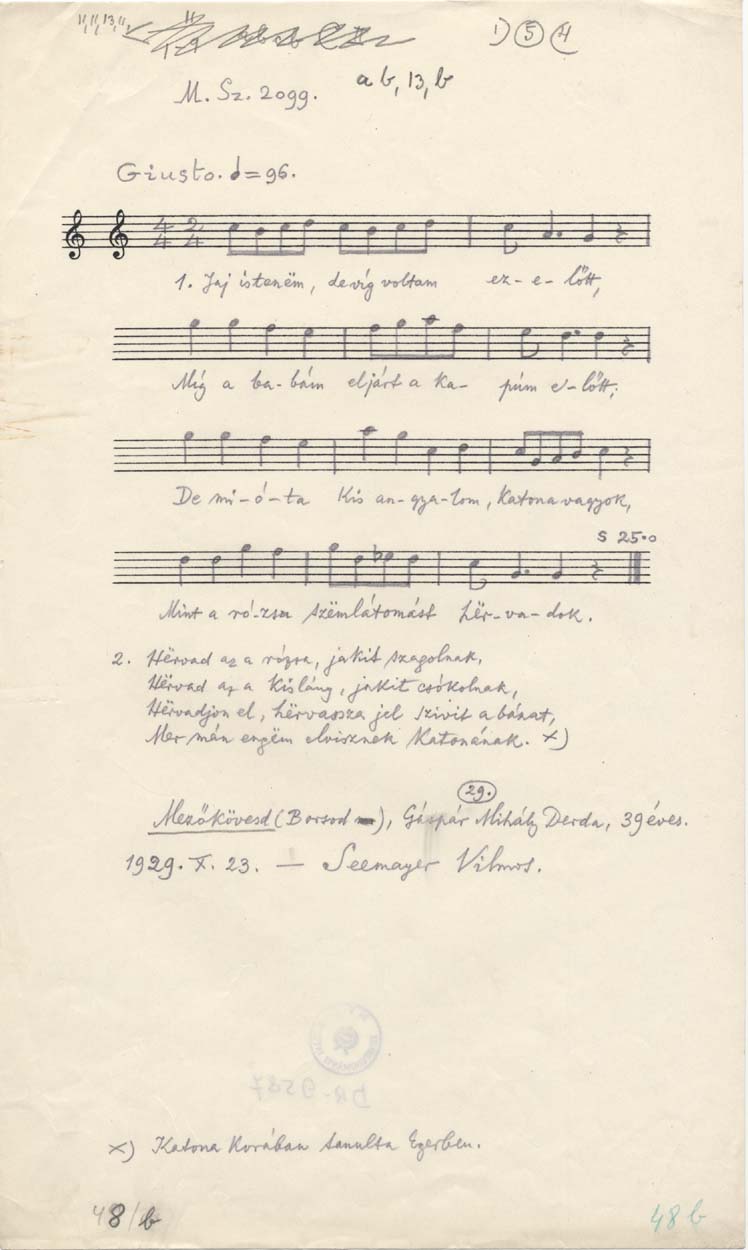 11, 11, 13, 11,
1) 5 4
M. Sz. 2099.
a b, 13, b
Giusto. = 96.
4/4 2/4
1. Jaj istenëm, de víg voltam ez-e-lőtt,
Míg a ba-bám eljárt a ka-púm e-lőtt;
De mi-ó-ta kis an-gya-lom, katona vagyok,
S 25.0
Mint a ró-zsa szëmlátomást hër-va-dok.
2. Hërvad az a rózsa, jakit szagolnak,
Hërvad az a kislány, jakit csókolnak,
Hërvadjon el, hërvassza jel szivit a bánat,
Mer mán engëm elvisznek katonának. x)
29.
Mezőkövesd (Borsod), Gáspár Mihály Derda, 39 éves.
1929. X. 23. — Seemayer Vilmos.
x) Katona korában tanulta Egerben.
48/b
48 b